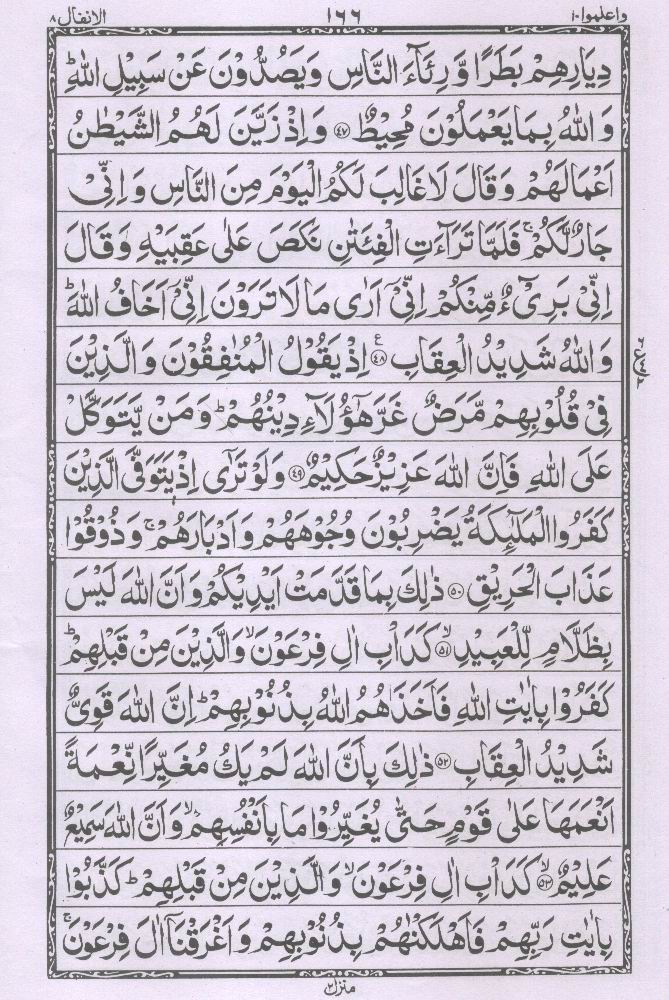 واعلموا ١٠ ١٦٦ الانفال ٨
دِيَارِهِمْ بَطَرًا وَّ رِئَآءَ النَّاسِ وَيَصُدُّوْنَ عَنْ سَبِيْلِ اللّٰهِ ؕ
وَاللّٰهُ بِمَا يَعْمَلُوْنَ مُحِيْطٌ ﴿۴۷﴾ وَ اِذْ زَيَّنَ لَهُمُ الشَّيْطٰنُ
اَعْمَالَهُمْ وَقَالَ لَا غَالِبَ لَكُمُ الْيَوْمَ مِنَ النَّاسِ وَ اِنِّيْ
جَارٌ لَّكُمْ ۚ فَلَمَّا تَرَآءَتِ الْفِئَتٰنِ نَكَصَ عَلٰى عَقِبَيْهِ وَ قَالَ
اِنِّيْ بَرِيْٓءٌ مِّنْكُمْ اِنِّيْٓ اَرٰى مَا لَا تَرَوْنَ اِنِّيْٓ اَخَافُ اللّٰهَ ؕ
وَاللّٰهُ شَدِيْدُ الْعِقَابِ ﴿۴۸﴾ ع اِذْ يَقُوْلُ الْمُنٰفِقُوْنَ وَ الَّذِيْنَ
فِيْ قُلُوْبِهِمْ مَّرَضٌ غَرَّ هٰٓؤُلَآءِ دِيْنُهُمْ ؕ وَ مَنْ يَّتَوَكَّلْ
عَلَى اللّٰهِ فَاِنَّ اللّٰهَ عَزِيْزٌ حَكِيْمٌ ﴿۴۹﴾ وَ لَوْ تَرٰٓى اِذْ يَتَوَفَّى الَّذِيْنَ
كَفَرُوا الْمَلٰٓئِكَةُ يَضْرِبُوْنَ وُجُوْهَهُمْ وَ اَدْبَارَهُمْ ۚ وَ ذُوْقُوْا
عَذَابَ الْحَرِيْقِ ﴿۵۰﴾ ذٰلِكَ بِمَا قَدَّمَتْ اَيْدِيْكُمْ وَ اَنَّ اللّٰهَ لَيْسَ
بِظَلَّامٍ لِّلْعَبِيْدِ ﴿۵۱﴾ ۙ كَدَاْبِ اٰلِ فِرْعَوْنَ ۙ وَالَّذِيْنَ مِنْ قَبْلِهِمْ ؕ
كَفَرُوْا بِاٰيٰتِ اللّٰهِ فَاَخَذَهُمُ اللّٰهُ بِذُنُوْبِهِمْ ؕ اِنَّ اللّٰهَ قَوِيٌّ
شَدِيْدُ الْعِقَابِ ﴿۵۲﴾ ذٰلِكَ بِاَنَّ اللّٰهَ لَمْ يَكُ مُغَيِّرًا نِّعْمَةً
اَنْعَمَهَا عَلٰى قَوْمٍ حَتّٰى يُغَيِّرُوْا مَا بِاَنْفُسِهِمْ ۙ وَ اَنَّ اللّٰهَ سَمِيْعٌ
عَلِيْمٌ ﴿۵۳﴾ ۙ كَدَاْبِ اٰلِ فِرْعَوْنَ ۙ وَ الَّذِيْنَ مِنْ قَبْلِهِمْ ؕ كَذَّبُوْا
بِاٰيٰتِ رَبِّهِمْ فَاَهْلَكْنٰهُمْ بِذُنُوْبِهِمْ وَ اَغْرَقْنَاۤ اٰلَ فِرْعَوْنَ ۚ
منزل ٢